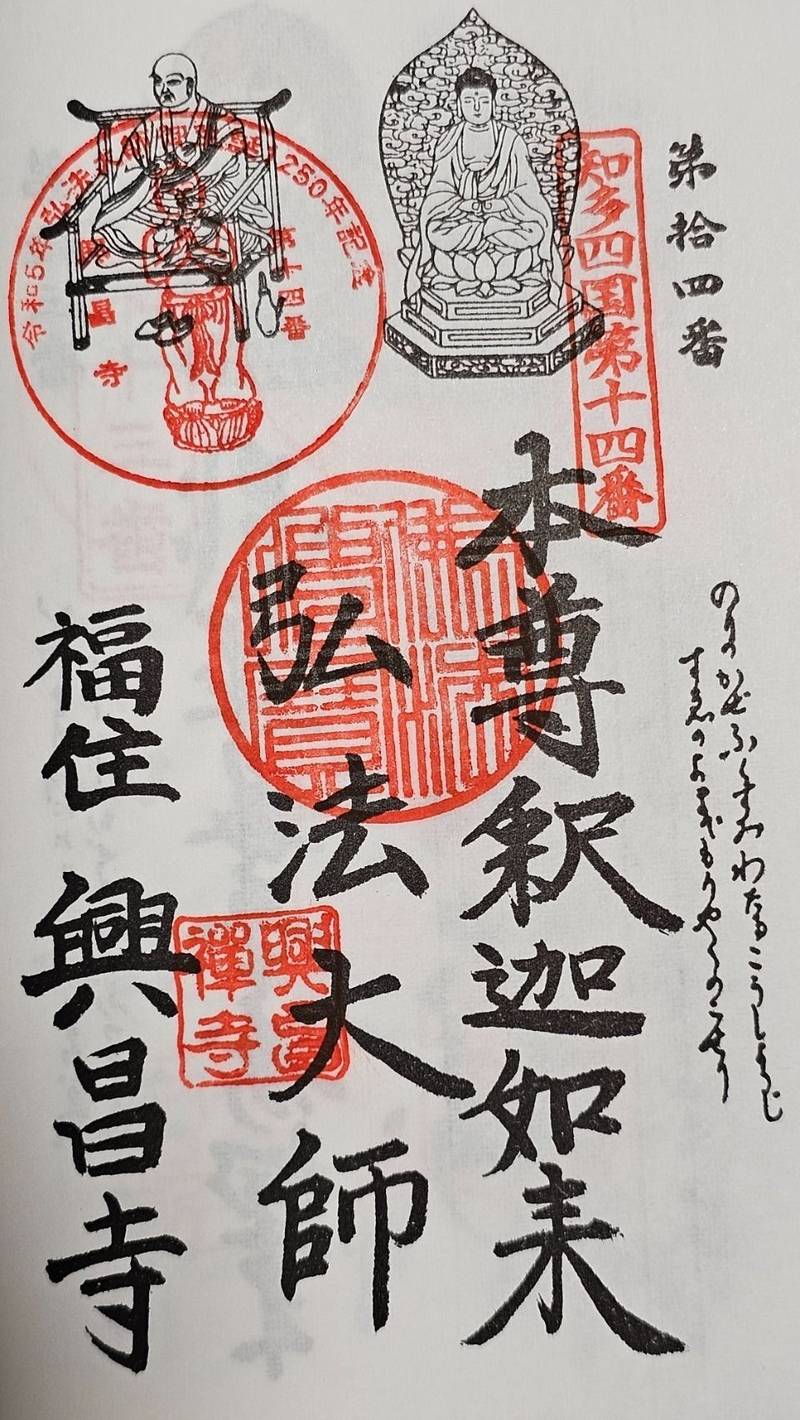 第拾四番
知多四国第十四番
本尊釈迦如来
弘法大師
福住 興昌寺
佛法僧寳
興昌禅寺
令和5年弘法大師御生誕1250年記念
第十四番
興昌寺